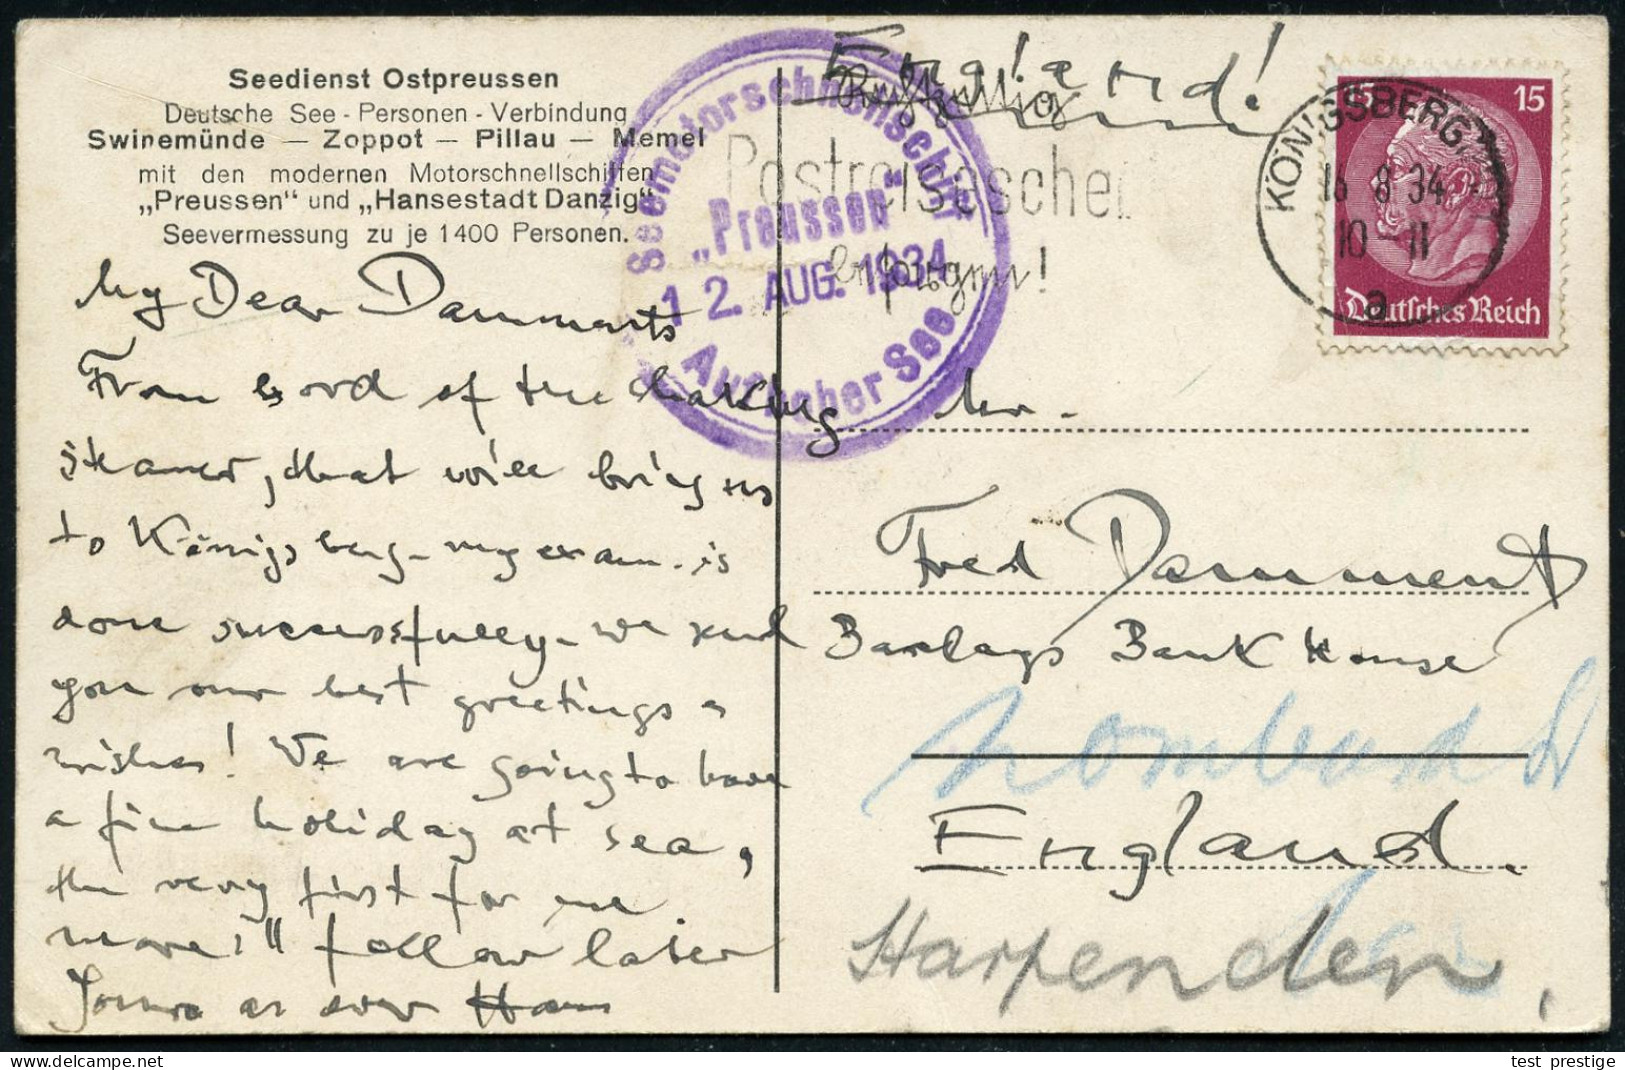 Seedienst Ostpreussen
Deutsche See - Personen - Verbindung
Swinemünde — Zoppot — Pillau — Memel
mit den modernen Motorschnellschiffen
„Preussen" und „Hansestadt Danzig"
Seevermessung zu je 1400 Personen.
My Dear Dammants
From bord of the
steamer, that will bring us
to Königsberg - my exam. is
done successfully - we send
you our best greetings &
wishes! We are going to have
a fine holiday at sea,
the very first for me.
more follow later
Yours as ever Hans
Seemotorschnellschiff
„Preussen"
12. AUG. 1934
Auf hoher See
England!
Rechtzeitig
Postreiseschei
besorgen!
KÖNIGSBERG
16 8 34
10-11
a
15 15
Deutsches Reich
Mr.
Fred Dammant
Barclays Bank House
Lombard St
England.
Harpenden,
test prestige